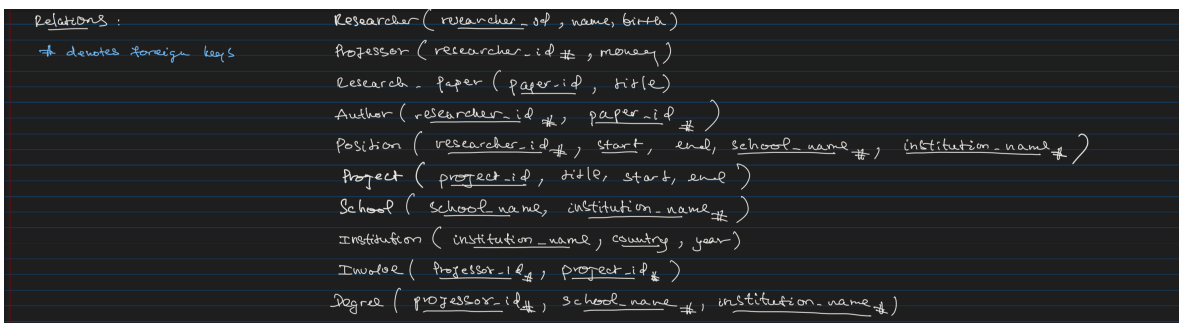 Relations : Researcher ( researcher_id , name, birth)
# denotes foreign keys Professor ( researcher_id # , money )
Research - Paper ( paper-id , title)
Author ( researcher_id #, paper_id # )
Position ( researcher_id #, start, end, school_name #, institution_name # )
Project ( project_id , title, start, end )
School ( school_name, institution_name # )
Institution ( institution_name, country, year)
Involve ( Professor_id #, project_id # )
Degree ( professor_id #, school_name #, institution_name # )